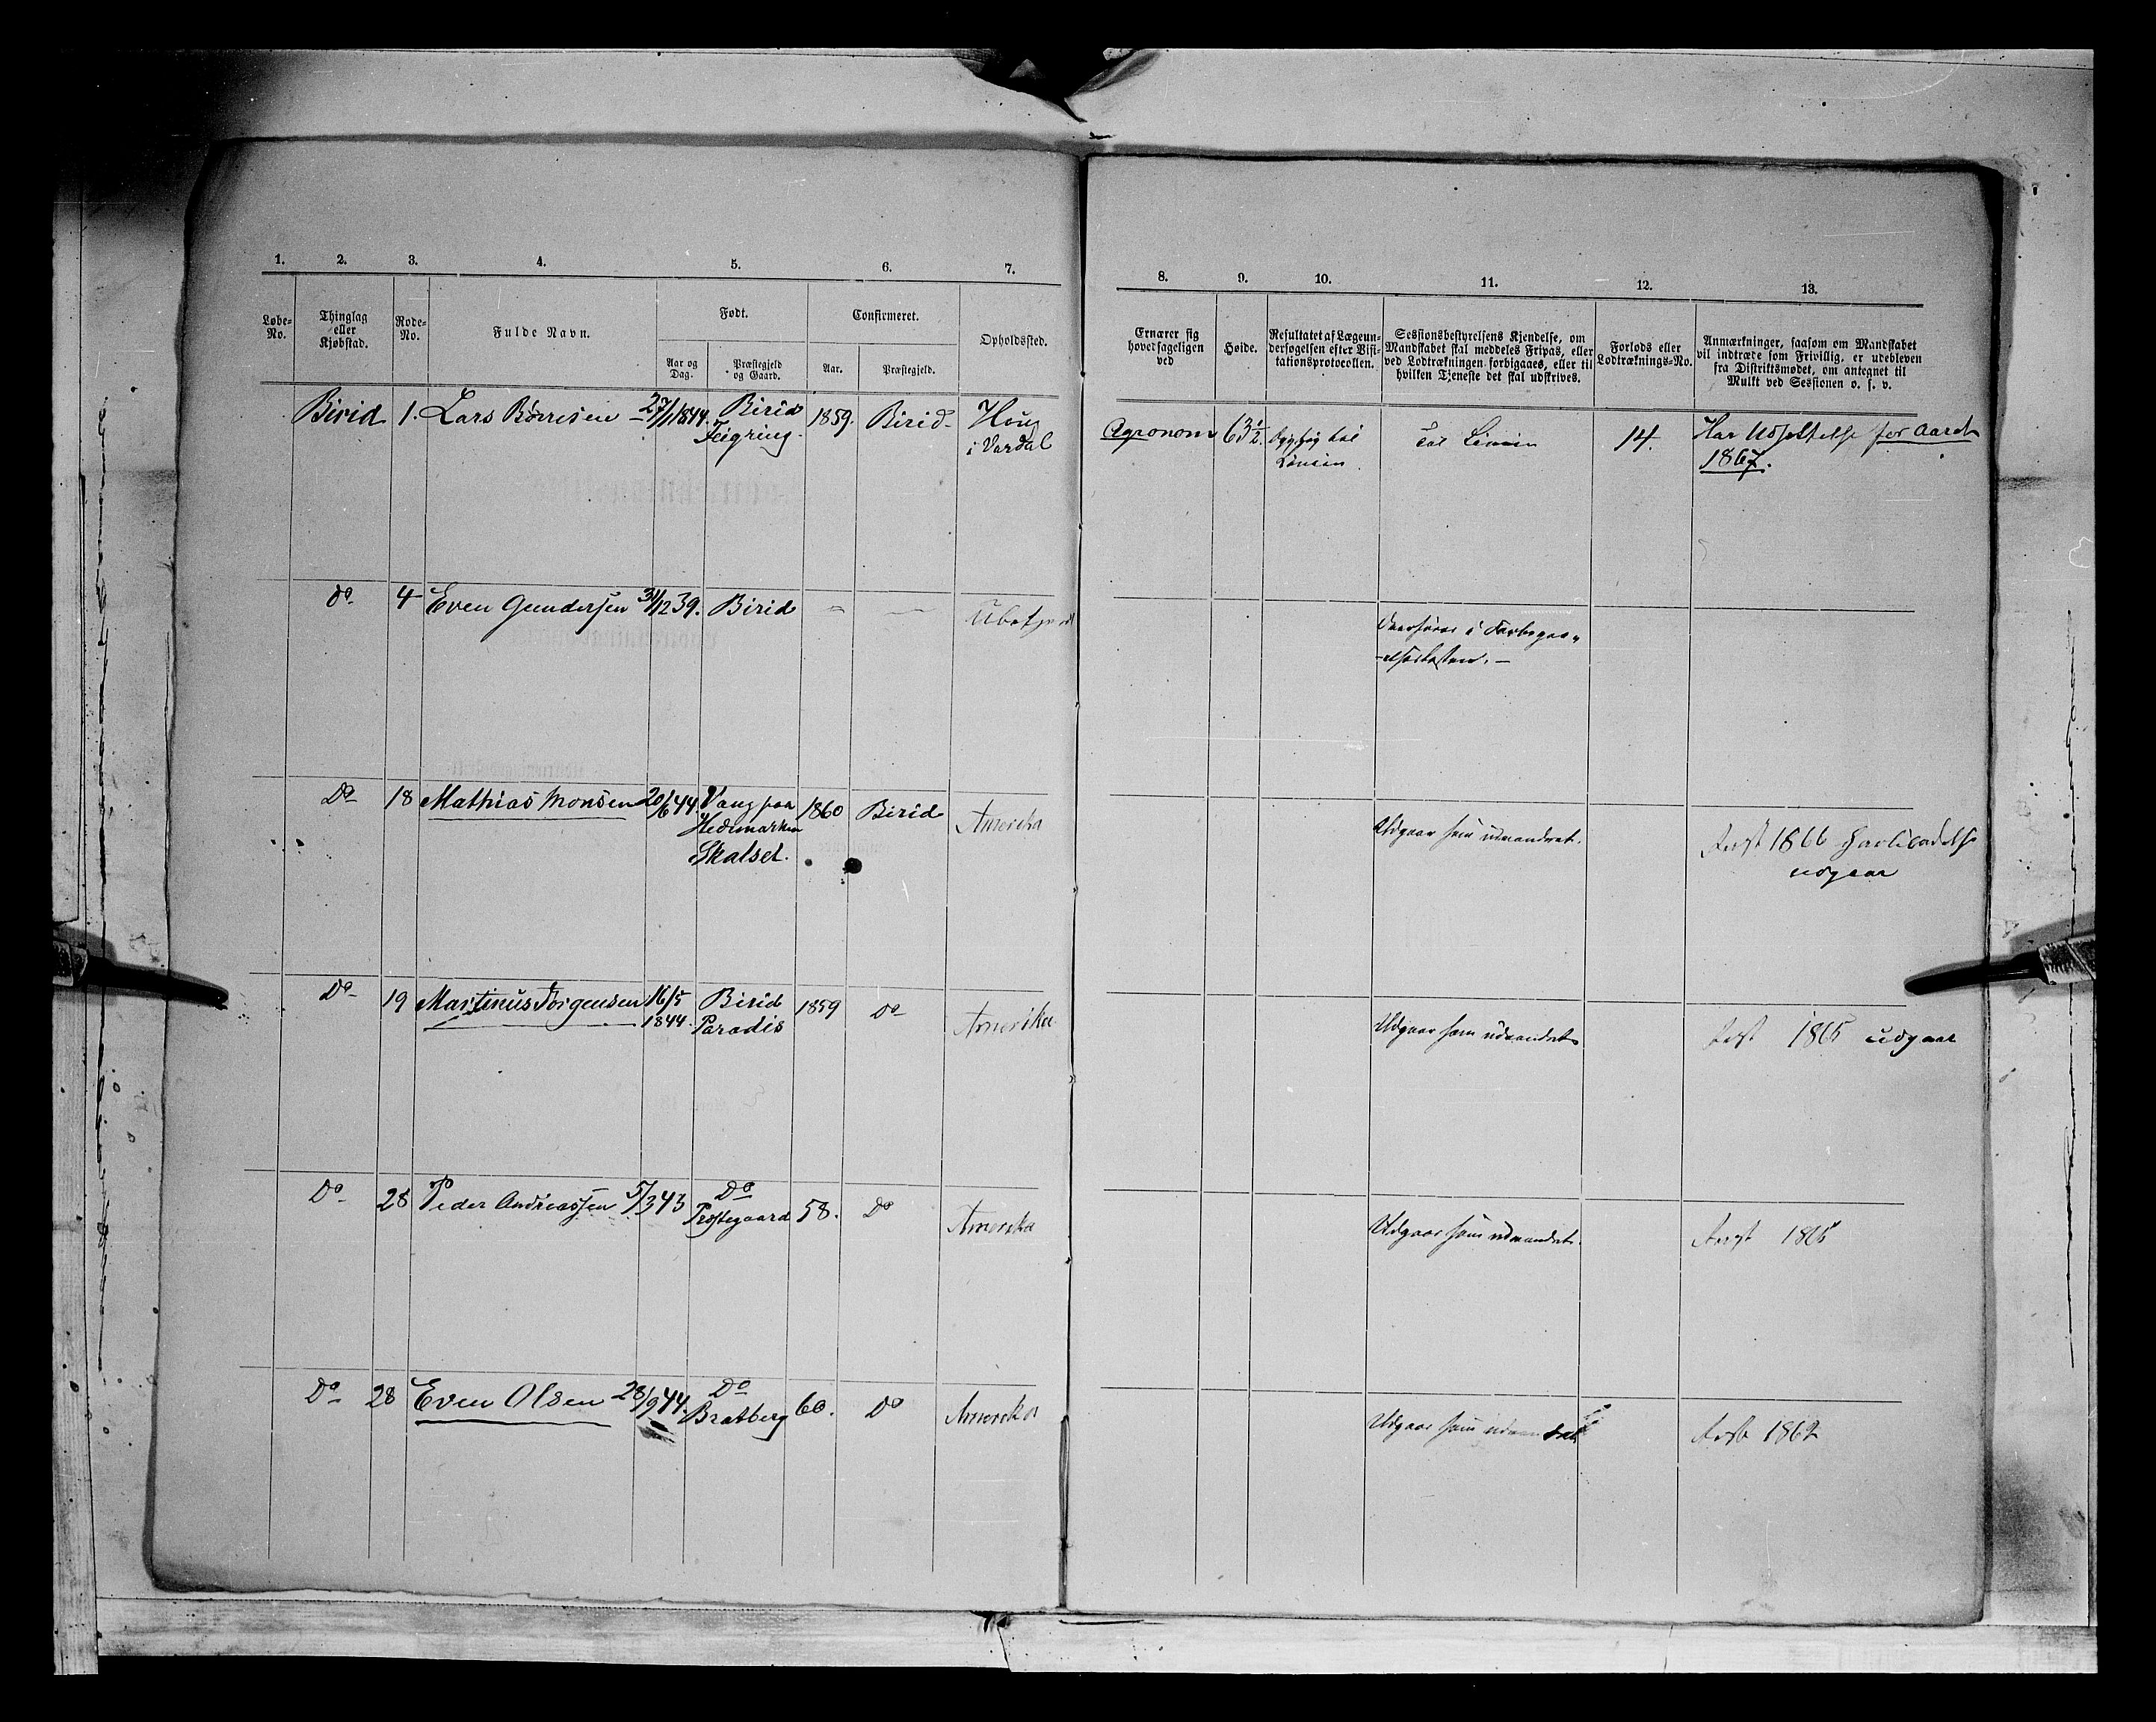 1. 2. 3. 4. 5. 6. 7.
Løbe-No. Thinglag eller Kjøbstad. Rode-No. Fulde Navn. Født. Confirmeret. Opholdssted.
Aar og Dag. Præstegjeld og Gaard. Aar. Præstegjeld.
8. 9. 10. 11. 12. 13.
Ernærer sig hovedsageligen ved
Høide.
Resultatet af Lægeundersøgelsen efter Visitationsprotocollen.
Sessionsbestyrelsens Kjendelse, om Mandskabet skal meddeles Fripas, eller ved Lodtrækningen forbigaaes, eller til hvilken Tjeneste det skal udskrives.
Forlods eller Lodtræknings-No.
Anmærkninger, saasom om Mandskabet vil indtræde som Frivillig, er udebleven fra Distriktsmødet, om antegnet til Mulkt ved Sessionen o. s. v.
Birid 1. Lars Børresen 27/1 1844. Birid 1859. Birid Houg
Feigring. i Vardal
Agronom 63½ til 14. Har Udsættelse for Aaret
1867.
Do 4 Even Gundersen 31/12 39. Birid
Do 18 Mathias Monsen 20/6 44. Vang paa 1860 Birid Amerika
Hedemarken
Skalset.
Udgaar som udvandret. 1866
udgaar
Do 19 Martinus Jørgensen 16/5 Birid 1859 Do Amerika
1844. Paradis
Udgaar som udvandret 1865 udgaar
Do 28 Peder Andreassen 5/3 43 Do 58. Do Amerika
Prestegaard
Udgaar som udvandret.
Do 28 Even Olsen 28/9 44. Do 60. Do Amerika
Bratberg
Udgaar som